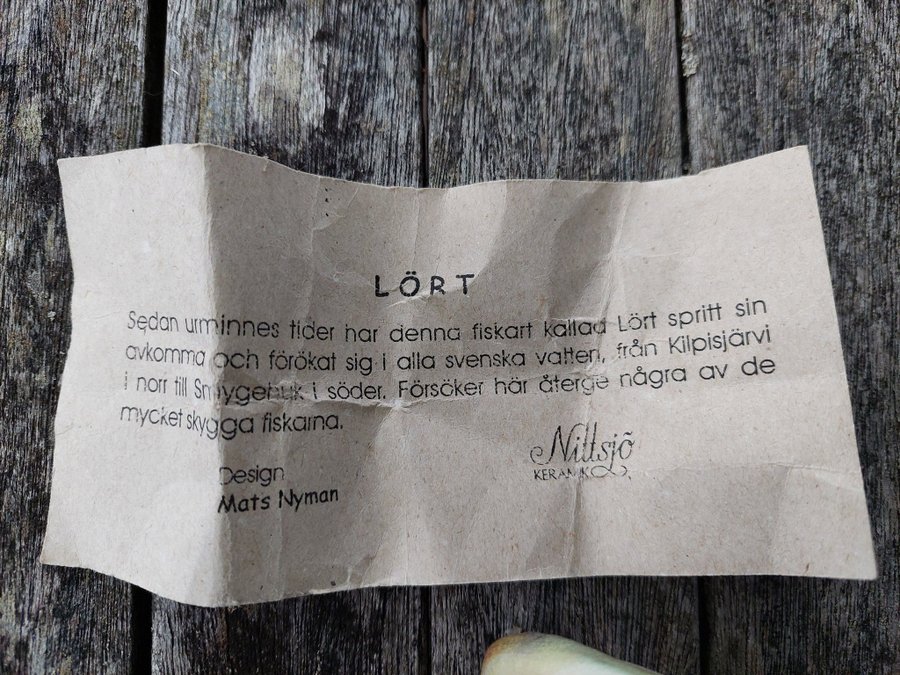 LÖRT
Sedan urminnes tider har denna fiskart kallad Lört spritt sin
avkomma och förökat sig i alla svenska vatten, från Kilpisjärvi
i norr till Smygehuk i söder. Försöker här återge några av de
mycket skygga fiskarna.
Design
Mats Nyman
Nittsjö
KERAMIK